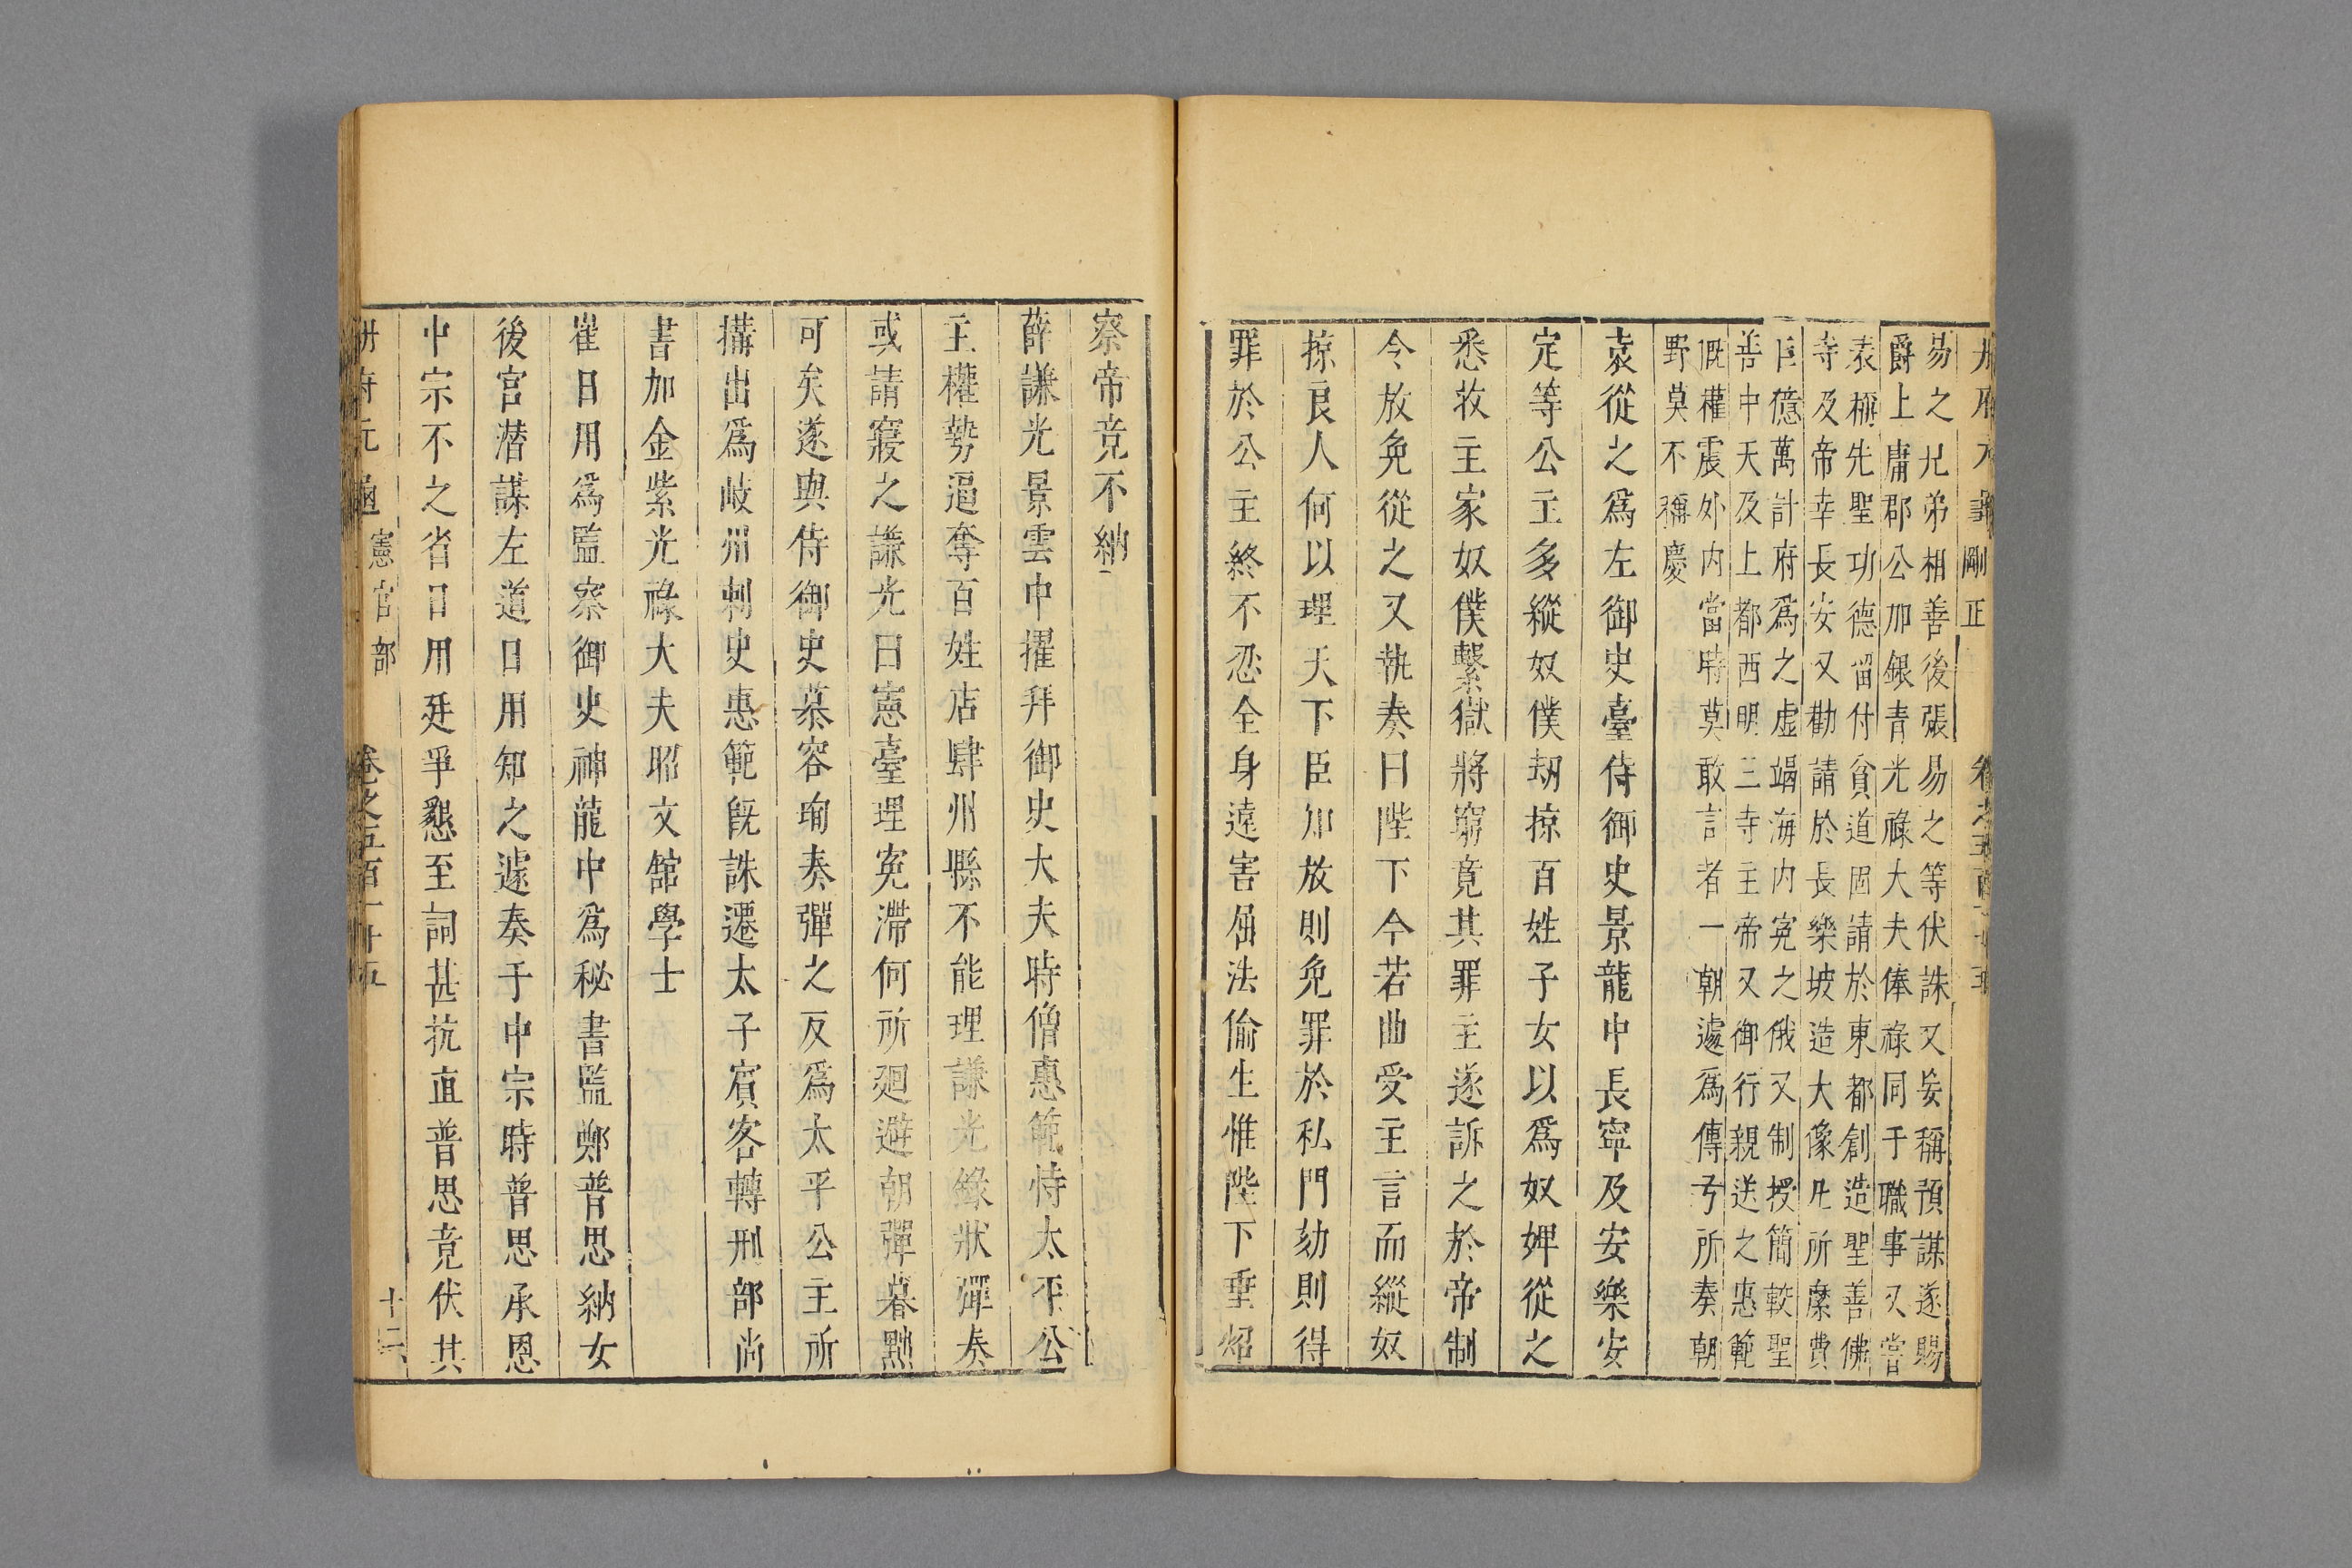 冊府元龜 剛正 卷之五百一十五
易之兄弟相善後張易之等伏誅又妄稱預謀遂賜
爵上庸郡公加銀青光祿大夫俸祿同于職事又嘗
表稱先聖功德留付貧道固請於東都創造聖善佛
寺及帝幸長安又勸請於長樂坡造大像凡所縻費
巨億萬計府爲之虛竭海内寃之俄又制授簡較聖
善中天及上都西明三寺主帝又御行親送之惠範
旣權震外内當時莫敢言者一朝遽爲傳弓所奏朝
野莫不稱慶
袁從之爲左御史臺侍御史景龍中長寧及安樂安
定等公主多縱奴僕刼掠百姓子女以爲奴婢從之
悉收主家奴僕繫獄將窮竟其罪主遂訴之於帝制
令放免從之又執奏曰陛下今若曲受主言而縱奴
掠良人何以理天下臣加放則免罪於私門劾則得
罪於公主終不忍全身遠害屈法偷生惟陛下垂炤
察帝竟不納
薛謙光景雲中擢拜御史大夫時僧惠範恃太平公
主權勢逼奪百姓店肆州縣不能理謙光錄狀彈奏
或請寢之謙光曰憲臺理寃滯何所廻避朝彈暮黜
可矣遂與侍御史慕容珣奏彈之反爲太平公主所
搆出爲岐州刺史惠範旣誅遷太子賓客轉刑部尚
書加金紫光祿大夫昭文館學士
崔日用爲監察御史神龍中爲秘書監鄭普思納女
後宮潛謀左道日用知之遽奏于中宗時普思承恩
中宗不之省日用廷爭懇至詞甚抗直普思竟伏其
冊府元龜 憲官部 卷之五百一十五 十二